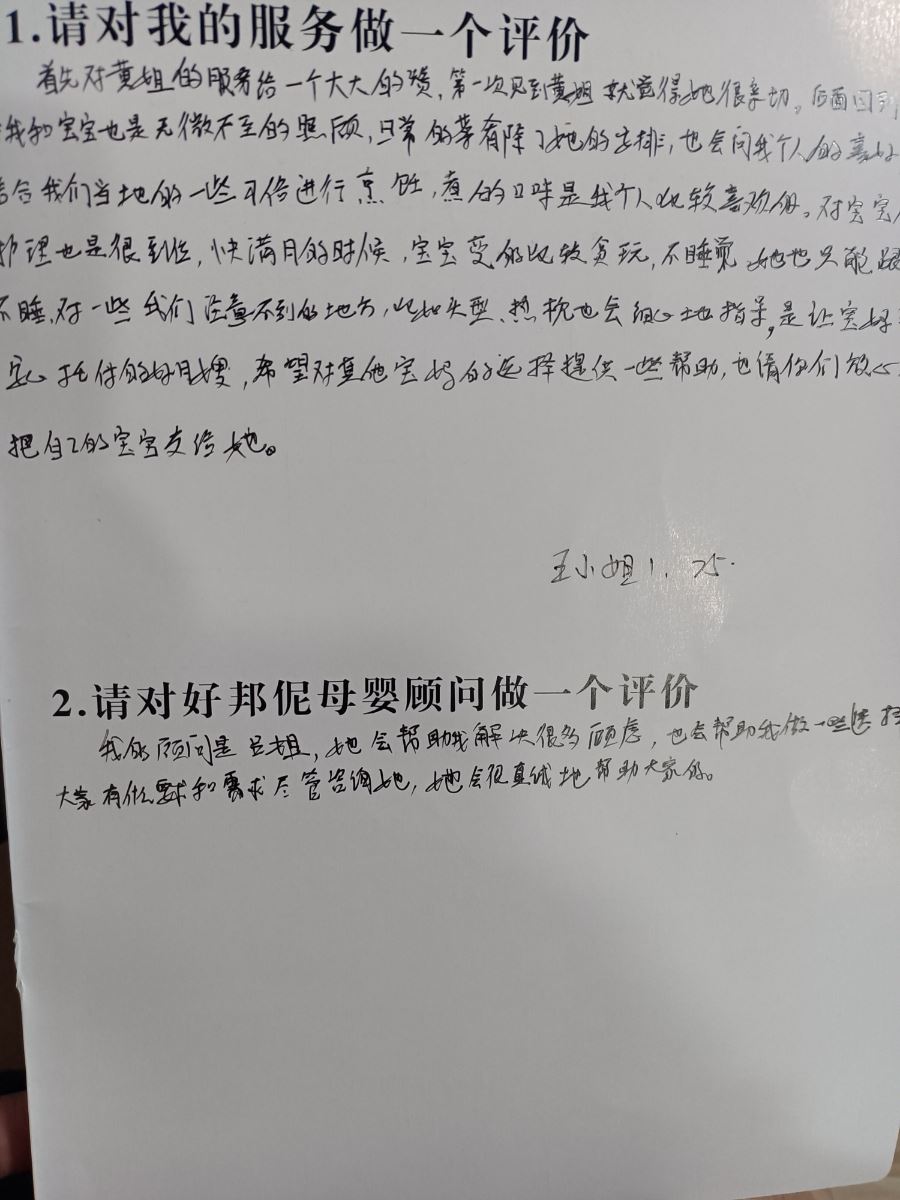 1.请对我的服务做一个评价
首先对黄姐的服务给一个大大的赞,第一次见到黄姐就觉得她很亲切。后面回到
我和宝宝也是无微不至的照顾,日常的菜肴除了她的安排,也会问我个人的喜好
结合我们当地的一些习俗进行烹饪,煮的口味是我个人比较喜欢的。对宝宝
护理也是很到位,快满月的时候,宝宝变的比较贪玩,不睡觉,她也只能跟
不睡,对一些我们注意不到的地方,比如头型、热枕也会细心地指导,是让宝妈
安心托付的好月嫂,希望对其他宝妈的选择提供一些帮助,也请你们放心
把自己的宝宝交给她。
王小姐 1.25.
2.请对好邦伲母婴顾问做一个评价
我的顾问是吕姐,她会帮助我解决很多顾虑,也会帮助我做一些选择
大家有什么要求和需求尽管咨询她,她会很真诚地帮助大家的。